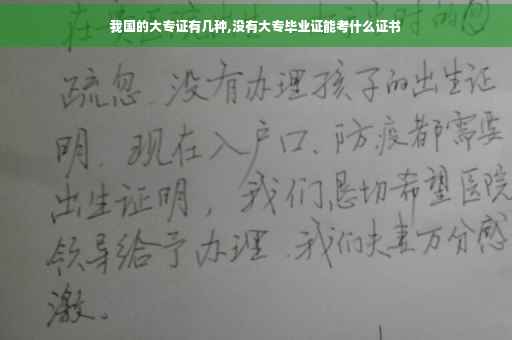 我国的大专证有几种,没有大专毕业证能考什么证书
疏忽、没有办理孩子的出生证
明、现在入户口、防疫都需要
出生证明，我们恳切希望医院
领导给予办理、我们夫妻万分感
激。